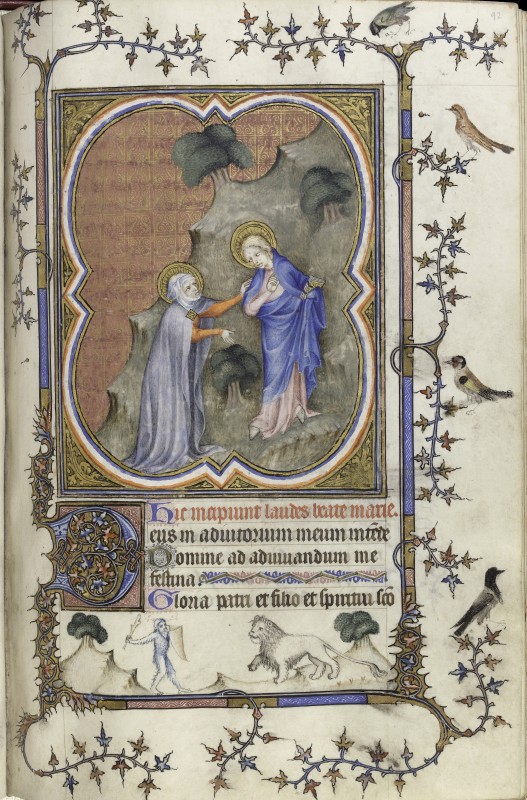 Hic incipiunt laudes beate marie.
Deus in adiutorium meum intēde
Domine ad adiuuandum me
festina:
Gloria patri et filio et spiritui sc̄o